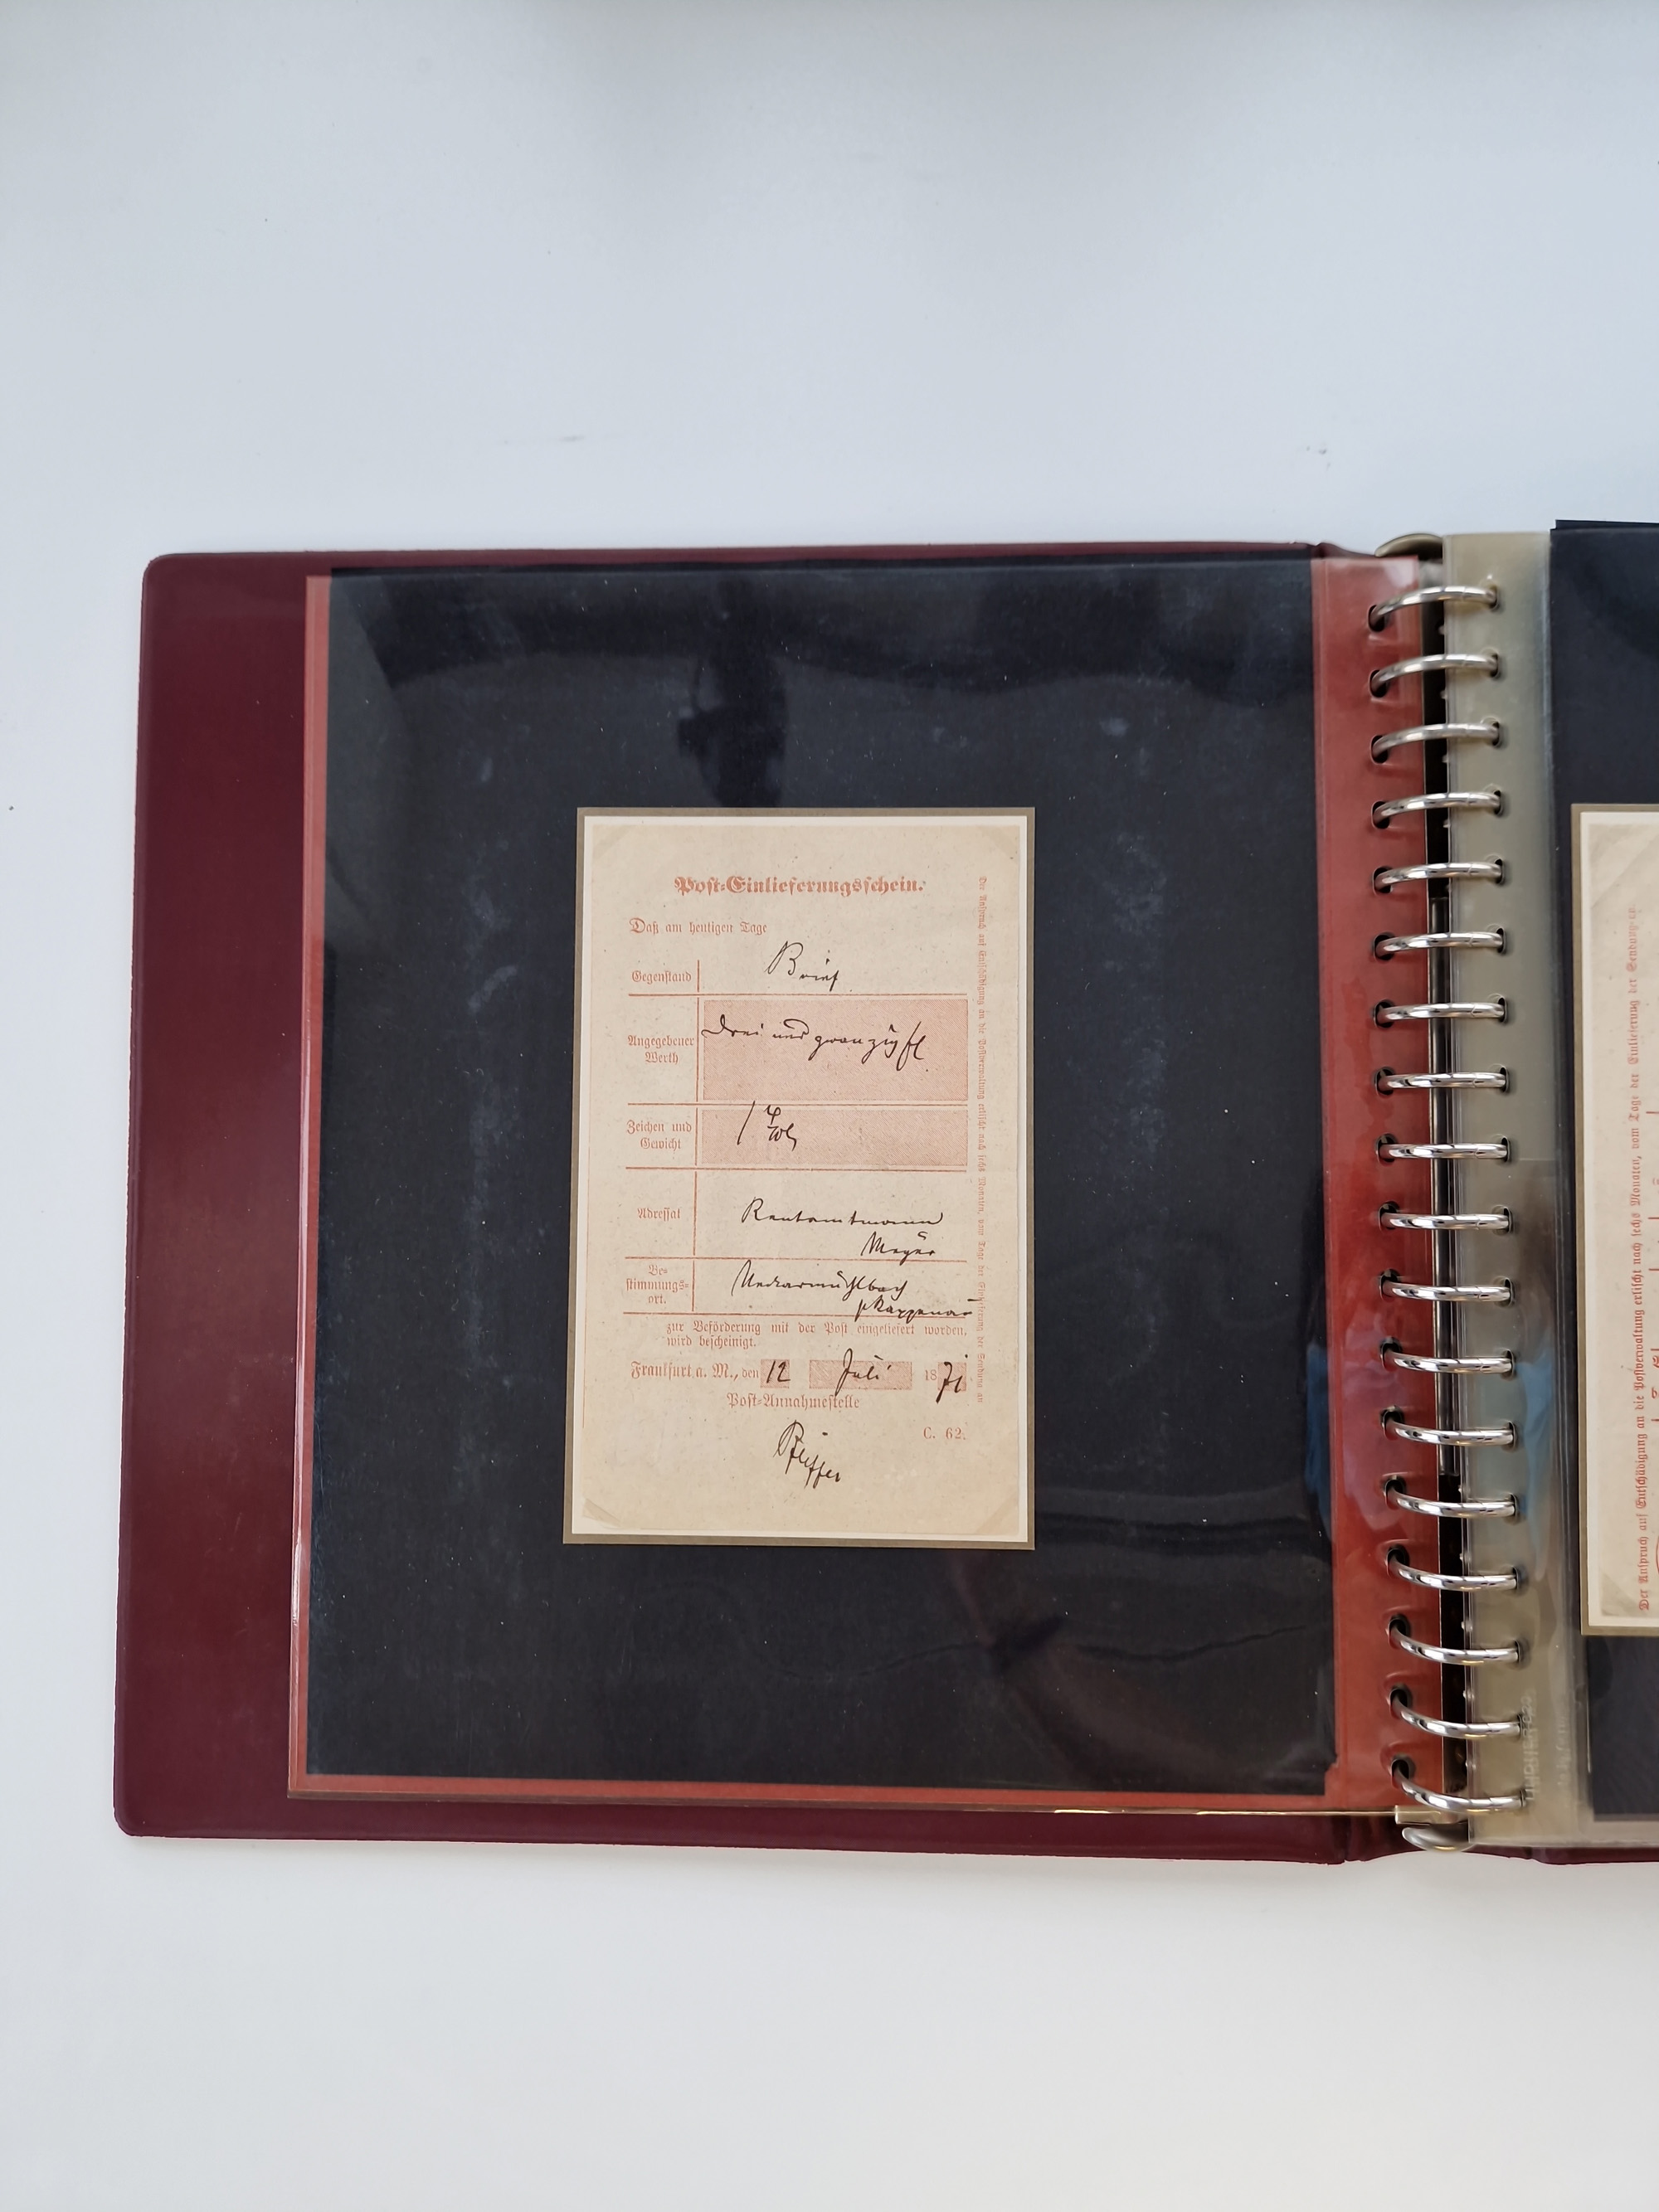 Post-Einlieferungsschein.
Daß am heutigen Tage
Gegenstand
Brief
Angegebener
Werth
Drei und zwanzig fl
Zeichen und
Gewicht
Adressat
Rentamtmann
Meyer
Be-
stimmungs-
ort.
Neckarmühlbach
p Rappenau
zur Beförderung mit der Post eingeliefert worden,
wird bescheinigt.
Frankfurt a. M., den 12 Juli 1871
Post-Annahmestelle
C. 62.
Pfeiffer
Der Anspruch auf Entschädigung an die Postverwaltung erlischt nach sechs Monaten, vom Tage der Einlieferung der Sendung an
Der Anspruch auf Entschädigung an die Postverwaltung erlischt nach sechs Monaten, vom Tage der Einlieferung der Sendung an.